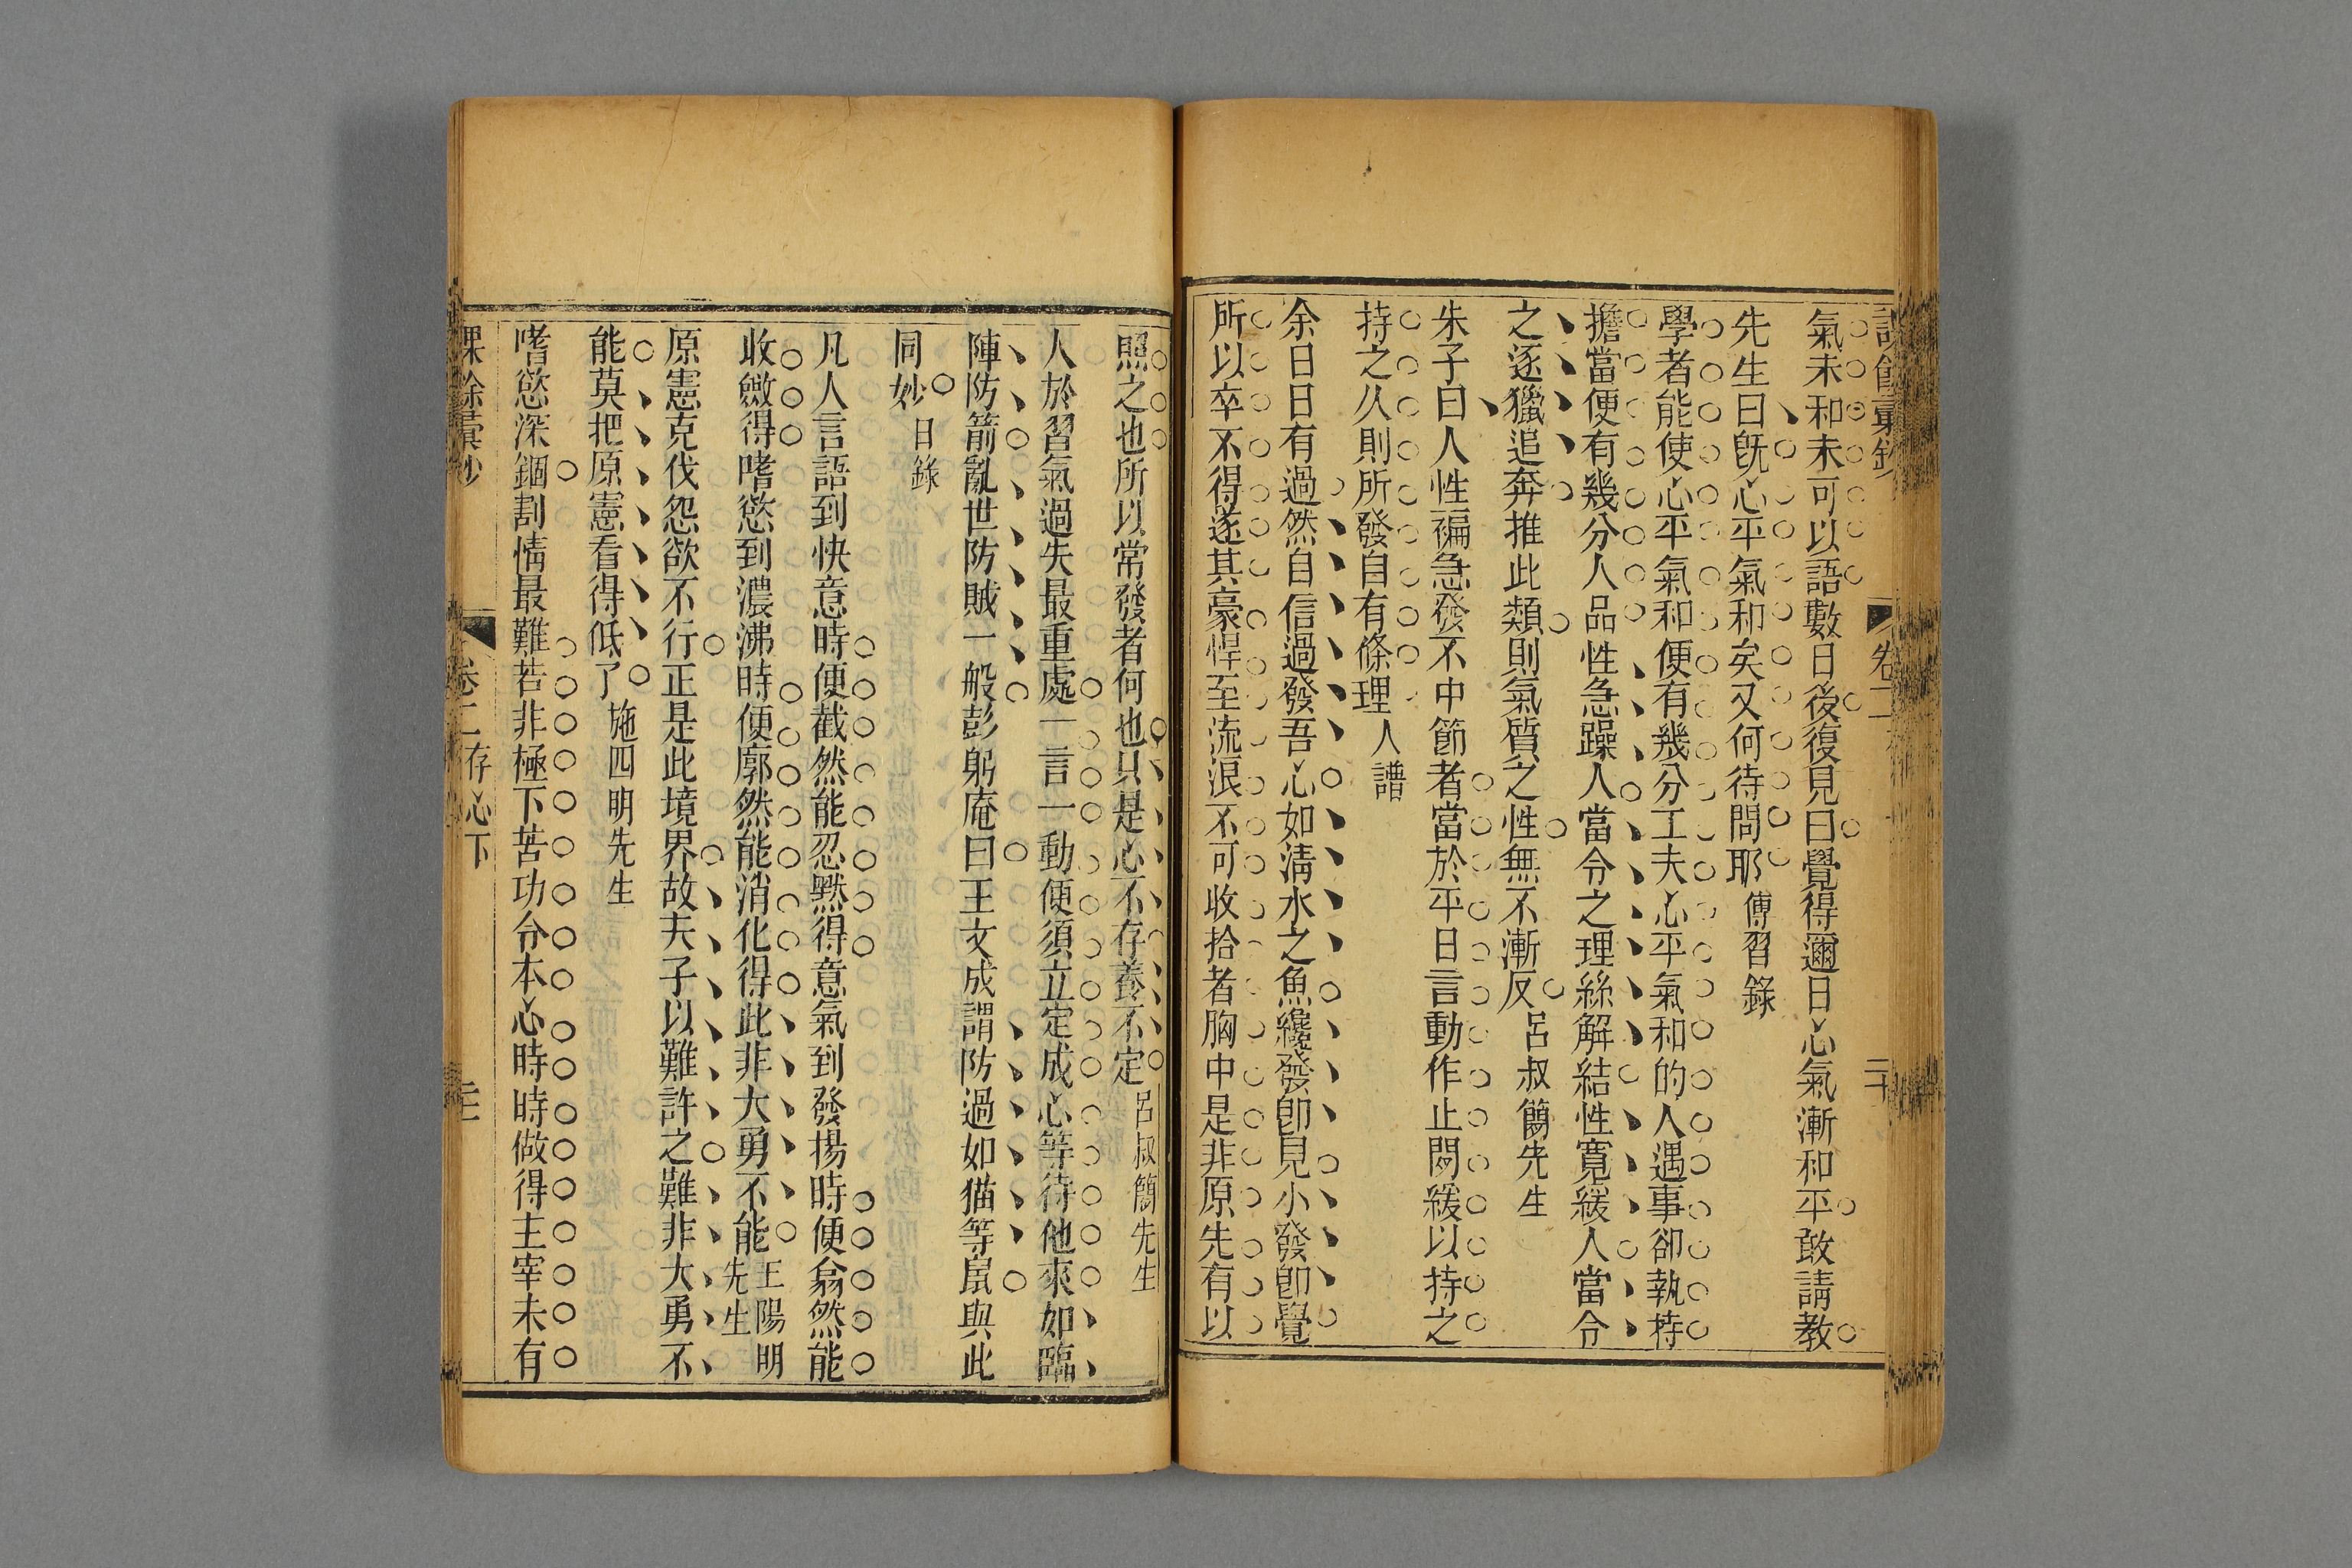 課餘彙鈔
卷二
二十
氣未和未可以語數日後復見曰覺得邇日心氣漸和平敢請教
先生曰旣心平氣和矣又何待問耶傳習錄
學者能使心平氣和便有幾分工夫心平氣和的人遇事卻執持
擔當便有幾分人品性急躁人當令之理絲解結性寬緩人當令
之逐獵追奔推此類則氣質之性無不漸反呂叔簡先生
朱子曰人性褊急發不中節者當於平日言動作止閒緩以持之
持之久則所發自有條理人譜
余日日有過然自信過發吾心如淸水之魚纔發卽見小發卽覺
所以卒不得遂其豪悍至流浪不可收拾者胸中是非原先有以
照之也所以常發者何也只是心不存養不定呂叔簡先生
人於習氣過失最重處一言一動便須立定成心等待他來如臨
陣防箭亂世防賊一般彭躬庵曰王文成謂防過如猫等鼠與此
同妙日錄
凡人言語到快意時便截然能忍默得意氣到發揚時便翕然能
收斂得嗜慾到濃沸時便廓然能消化得此非大勇不能王陽明先生
原憲克伐怨欲不行正是此境界故夫子以難許之難非大勇不
能莫把原憲看得低了施四明先生
嗜慾深錮割情最難若非極下苦功令本心時時做得主宰未有
課餘彙鈔
卷二存心下